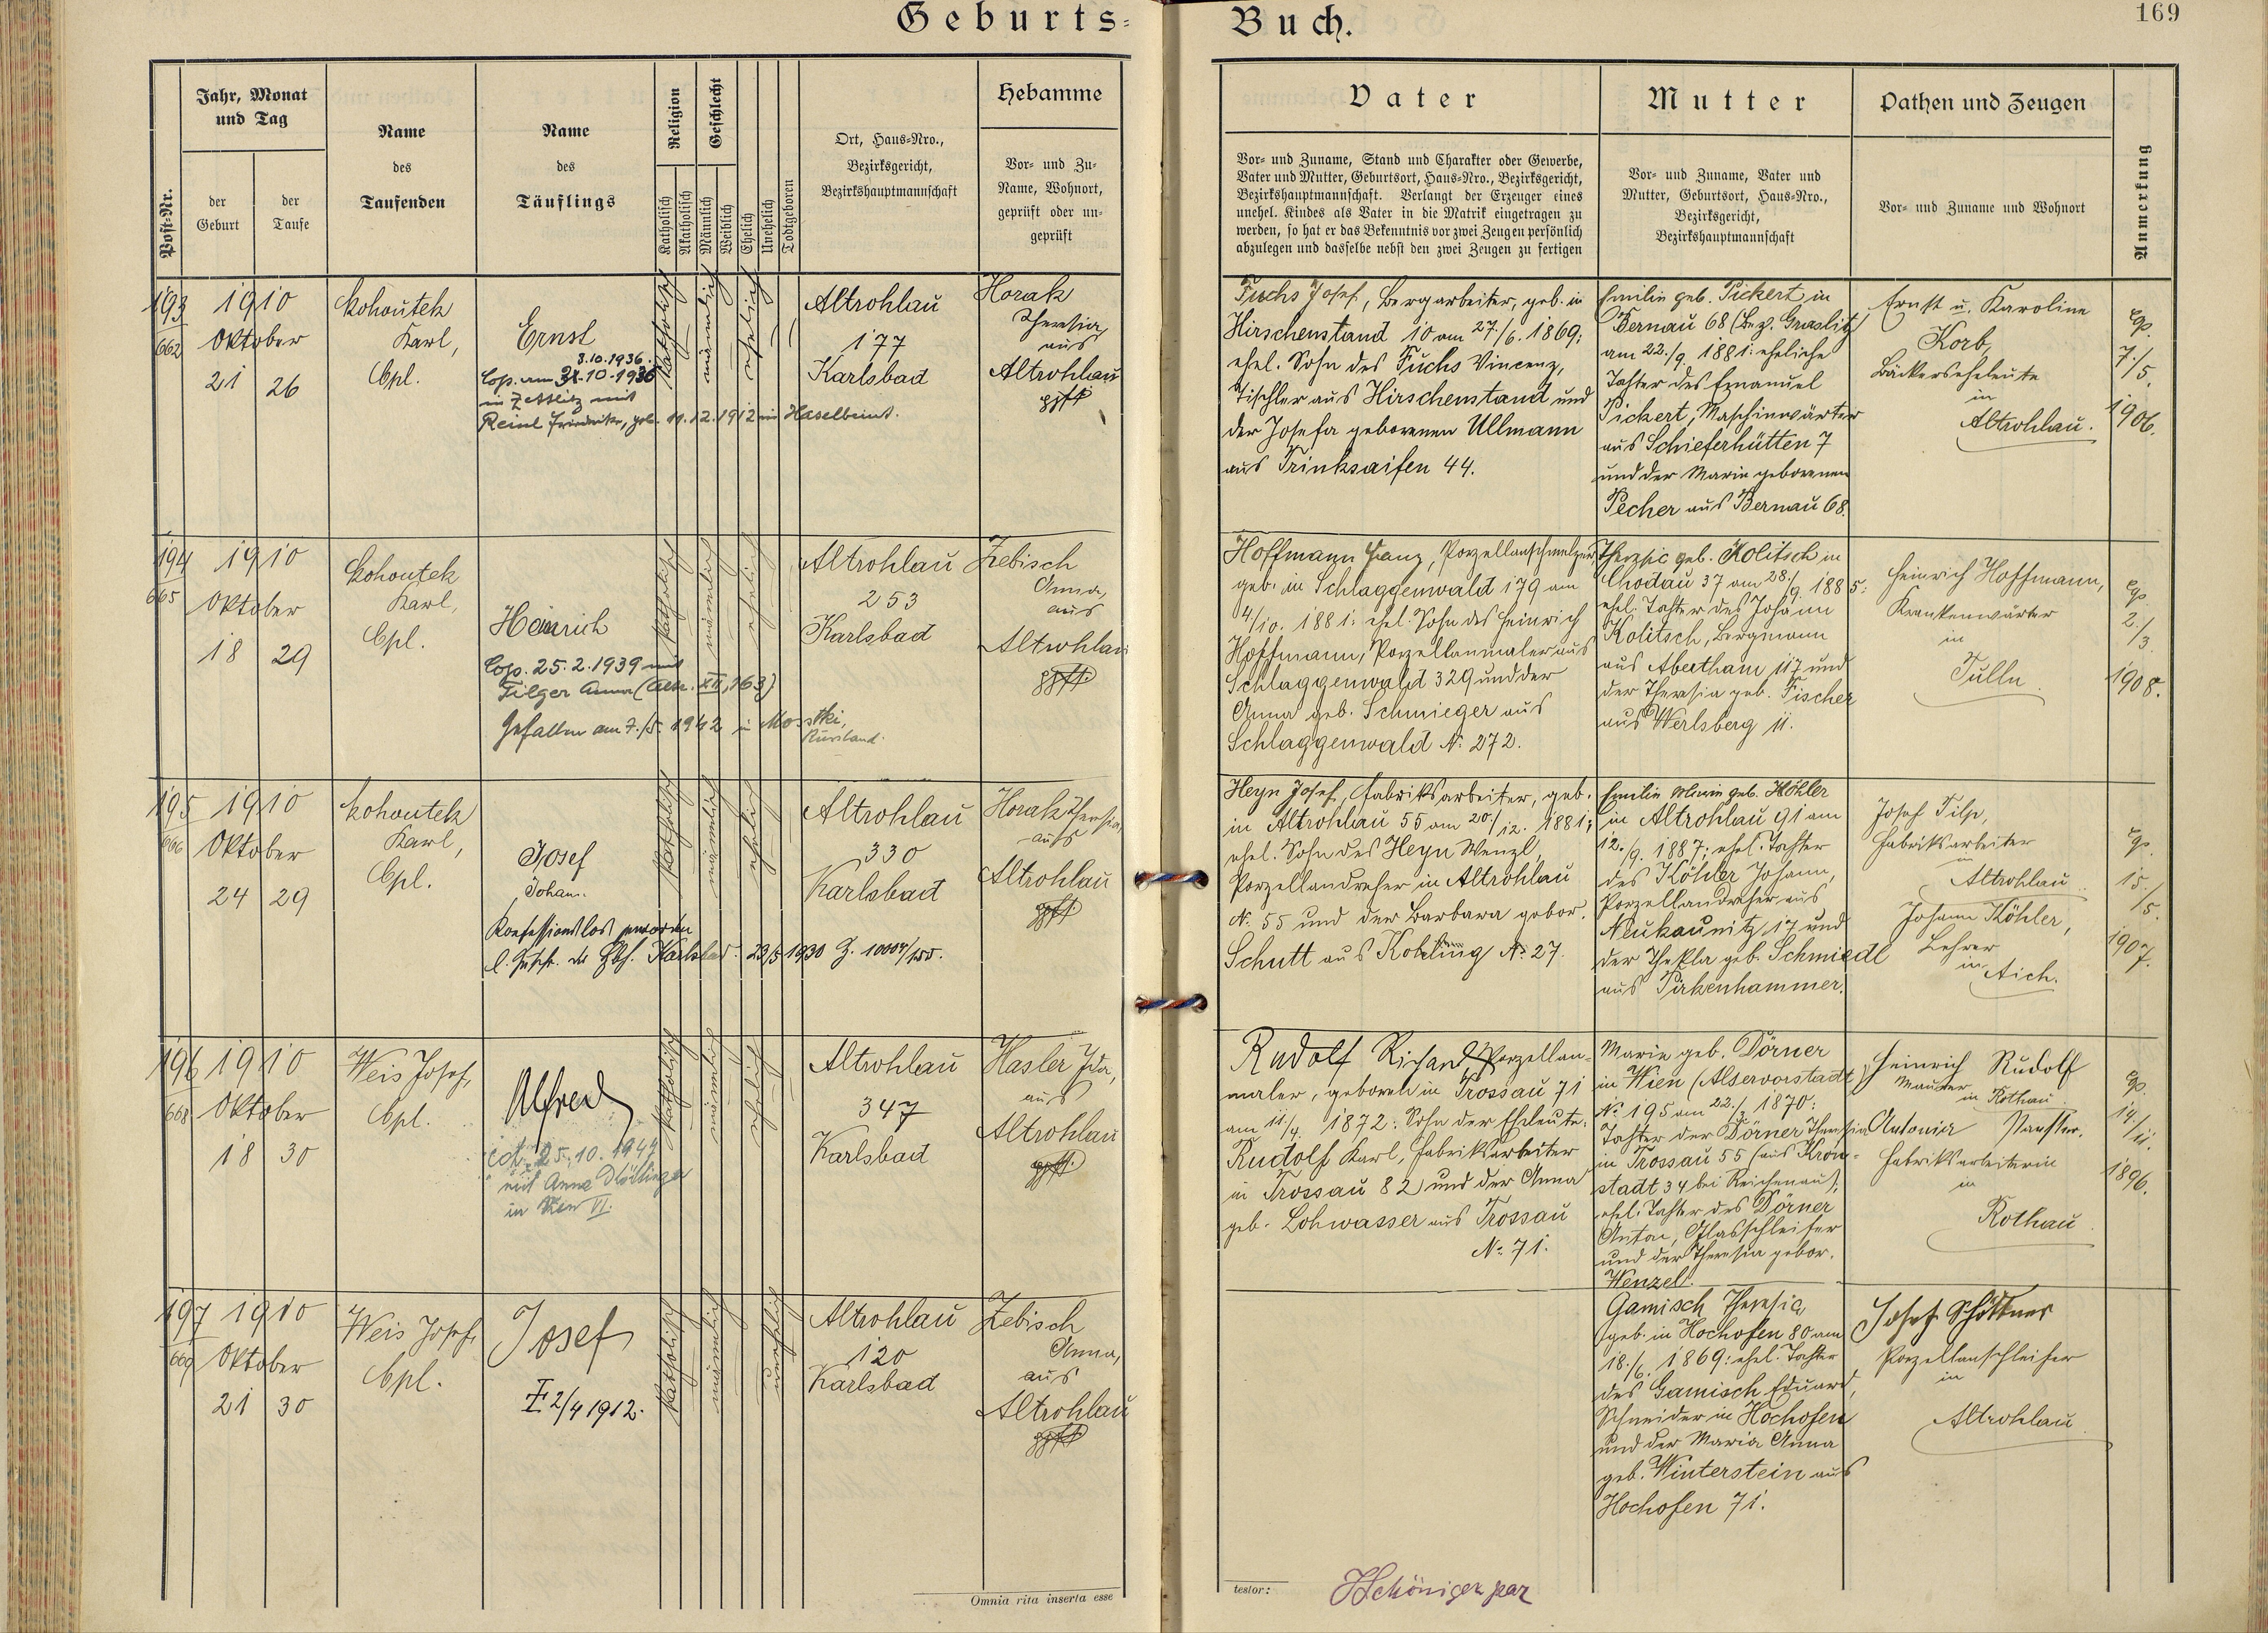 Geburts-
Buch.
169
Post-Nr.
Jahr, Monat
und Tag
der
Geburt
der
Taufe
Name
des
Taufenden
Name
des
Täuflings
Religion
Katholisch
Akatholisch
Geschlecht
Männlich
Weiblich
Ehelich
Unehelich
Todtgeboren
Ort, Haus-Nro.,
Bezirksgericht,
Bezirkshauptmannschaft
Hebamme
Vor- und Zu-
Name, Wohnort,
geprüft oder un-
geprüft
Vater
Vor- und Zuname, Stand und Charakter oder Gewerbe,
Vater und Mutter, Geburtsort, Haus-Nro., Bezirksgericht,
Bezirkshauptmannschaft. Verlangt der Erzeuger eines
unehel. Kindes als Vater in die Matrik eingetragen zu
werden, so hat er das Bekenntnis vor zwei Zeugen persönlich
abzulegen und dasselbe nebst den zwei Zeugen zu fertigen
Mutter
Vor- und Zuname, Vater und
Mutter, Geburtsort, Haus-Nro.,
Bezirksgericht,
Bezirkshauptmannschaft
Pathen und Zeugen
Vor- und Zuname und Wohnort
Anmerkung
193
662
1910
Oktober
21
26
Kohoutek
Karl,
Cpl.
Ernst
3.10.1936.
Cop. am 31.10.1936
in Zettlitz mit
Reinl Friederike, geb. 11.12.1912 in Haselbrunn.
katholisch
männlich
ehelich
Altrohlau
177
Karlsbad
Horak
Theresia,
aus
Altrohlau
gpft
Fuchs Josef, Bergarbeiter, geb. in
Hirschenstand 10 am 27./6. 1869;
ehel. Sohn des Fuchs Vincenz,
Tischler aus Hirschenstand und
der Josefa geborenen Ullmann
aus Trinksaifen 44.
Emilie geb. Pickert in
Bernau 68 (Bez. Graslitz)
am 22./9 1881: eheliche
Tochter des Emanuel
Pickert, Maschinwärter
aus Schieferhütten 7
und der Marie geborenen
Pecher aus Bernau 68.
Ernst u. Karoline
Korb,
Bäckerseheleute
in
Altrohlau.
cop.
7./5.
1906.
194
665
1910
Oktober
18
29
Kohoutek
Karl,
Cpl.
Heinrich
Cop. 25.2.1939 mit
Filger Anna (Altr. XII, 163)
Gefallen am 7./5. 1942 in Mostki,
Russland.
katholisch
männlich
ehelich
Altrohlau
253
Karlsbad
Zebisch
Anna,
aus
Altrohlau
gpft.
Hoffmann Franz, Porzellanschmelzer
geb. in Schlaggenwald 179 am
4/10. 1881: ehel. Sohn des Heinrich
Hoffmann, Porzellanmaler aus
Schlaggenwald 329 und der
Anna geb. Schmieger aus
Schlaggenwald N: 272.
Theresie geb. Kolitsch in
Chodau 37 am 28./9. 1885:
ehel. Tochter des Johann
Kolitsch, Bergmann
aus Abertham 117 und
der Theresia geb. Fischer
aus Werlsberg 11.
Heinrich Hoffmann,
Krankenwärter
in
Tulln
cop.
2./3.
1908.
195
666
1910
Oktober
24
29
Kohoutek
Karl,
Cpl.
Josef
Johann.
Konfessionslos geworden
l. Zuschr. der Bbh. Karlsbad. 23/5 1930 Z. 10004/
katholisch
männlich
ehelich
Altrohlau
330
Karlsbad
Horak Theresia,
aus
Altrohlau
gpft.
Heyn Josef, Fabriksarbeiter, geb.
in Altrohlau 55 am 20./12. 1881;
ehel. Sohn des Heyn Wenzl,
Porzellandreher in Altrohlau
N: 55 und der Barbara gebor.
Schutt aus Kohling N: 27.
Emilie Marie geb. Köhler
in Altrohlau 91 am
12./9. 1887; ehel. Tochter
des Köhler Johann,
Porzellandreher aus
Neukaunitz 17 und
der Thekla geb. Schmiedl
aus Pirkenhammer.
Josef Tilp,
Fabriksarbeiter
in
Altrohlau
Johann Köhler,
Lehrer
in
Aich.
cop.
15./5.
1907.
196
668
1910
Oktober
18
30
Weis Josef,
Cpl.
Alfred
25.10.1947
mit Anna
in Wien VI.
katholisch
männlich
ehelich
Altrohlau
347
Karlsbad
Hasler Ida,
aus
Altrohlau
gpft.
Rudolf Richard, Porzellan-
maler, geboren in Trossau 71
am 11/4. 1872: Sohn der Eheleute:
Rudolf Karl, Fabriksarbeiter
in Trossau 82 und der Anna
geb. Lohwasser aus Trossau
N: 71.
Marie geb. Dörner
in Wien (Alservorstadt)
N: 195 am 22./3 1870:
Tochter der Dörner Theresia
in Trossau 55 (aus Kron-
stadt 34 bei Reichenau),
ehel. Tochter des Dörner
Anton, Glasschleifer
und der Theresia gebor.
Wenzel.
Heinrich Rudolf
Maurer
in Rothau
Antonia
Fabriksarbeiterin
in
Rothau
cop.
14/11.
1896.
197
669
1910
Oktober
21
30
Weis Josef,
Cpl.
Josef
2/4 1912.
katholisch
männlich
unehelich
Altrohlau
120
Karlsbad
Zebisch
Anna,
aus
Altrohlau
gpft
Gamisch Theresia,
geb. in Hochofen 80 am
18./6. 1869: ehel. Tochter
des Gamisch Eduard,
Schneider in Hochofen
und der Maria Anna
geb. Winterstein aus
Hochofen 71.
Josef Schöttner
Porzellanschleifer
in
Altrohlau
Omnia rita inserta esse
testor: